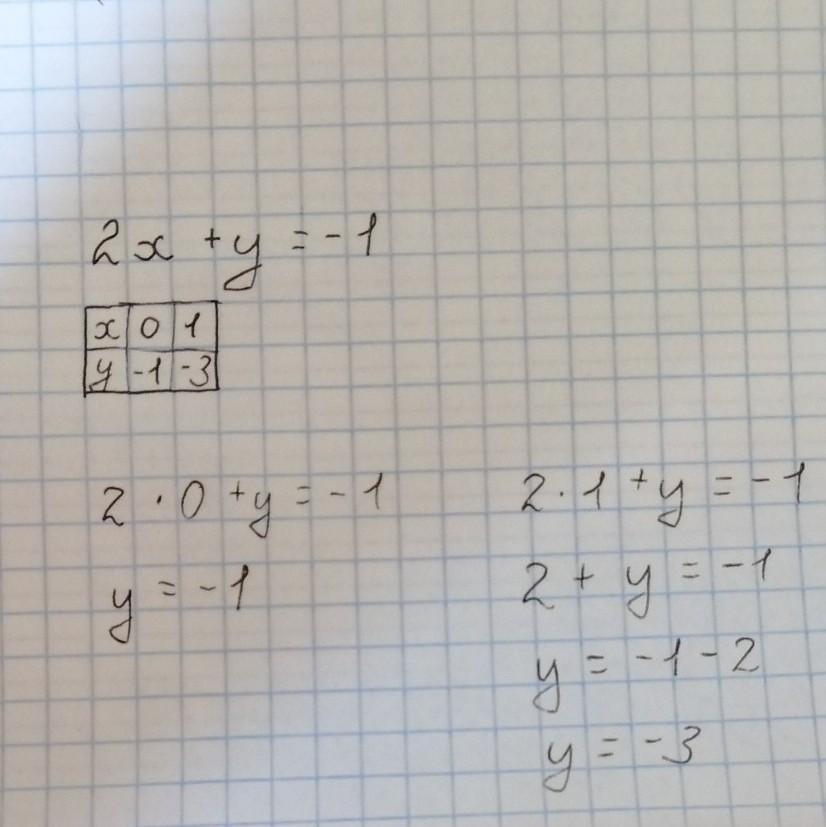 2x + y = -1
x 0 1
y -1 -3
2 · 0 + y = -1
y = -1
2 · 1 + y = -1
2 + y = -1
y = -1 - 2
y = -3